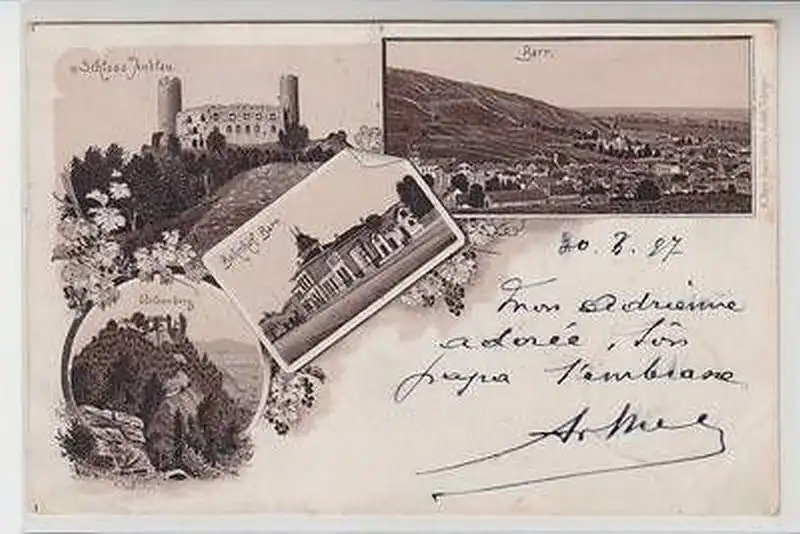 Schloss Andlau
Barr.
Bahnhof Barr
20. 7. 97
Mon Adrienne
adorée, Ton
papa t'embrasse